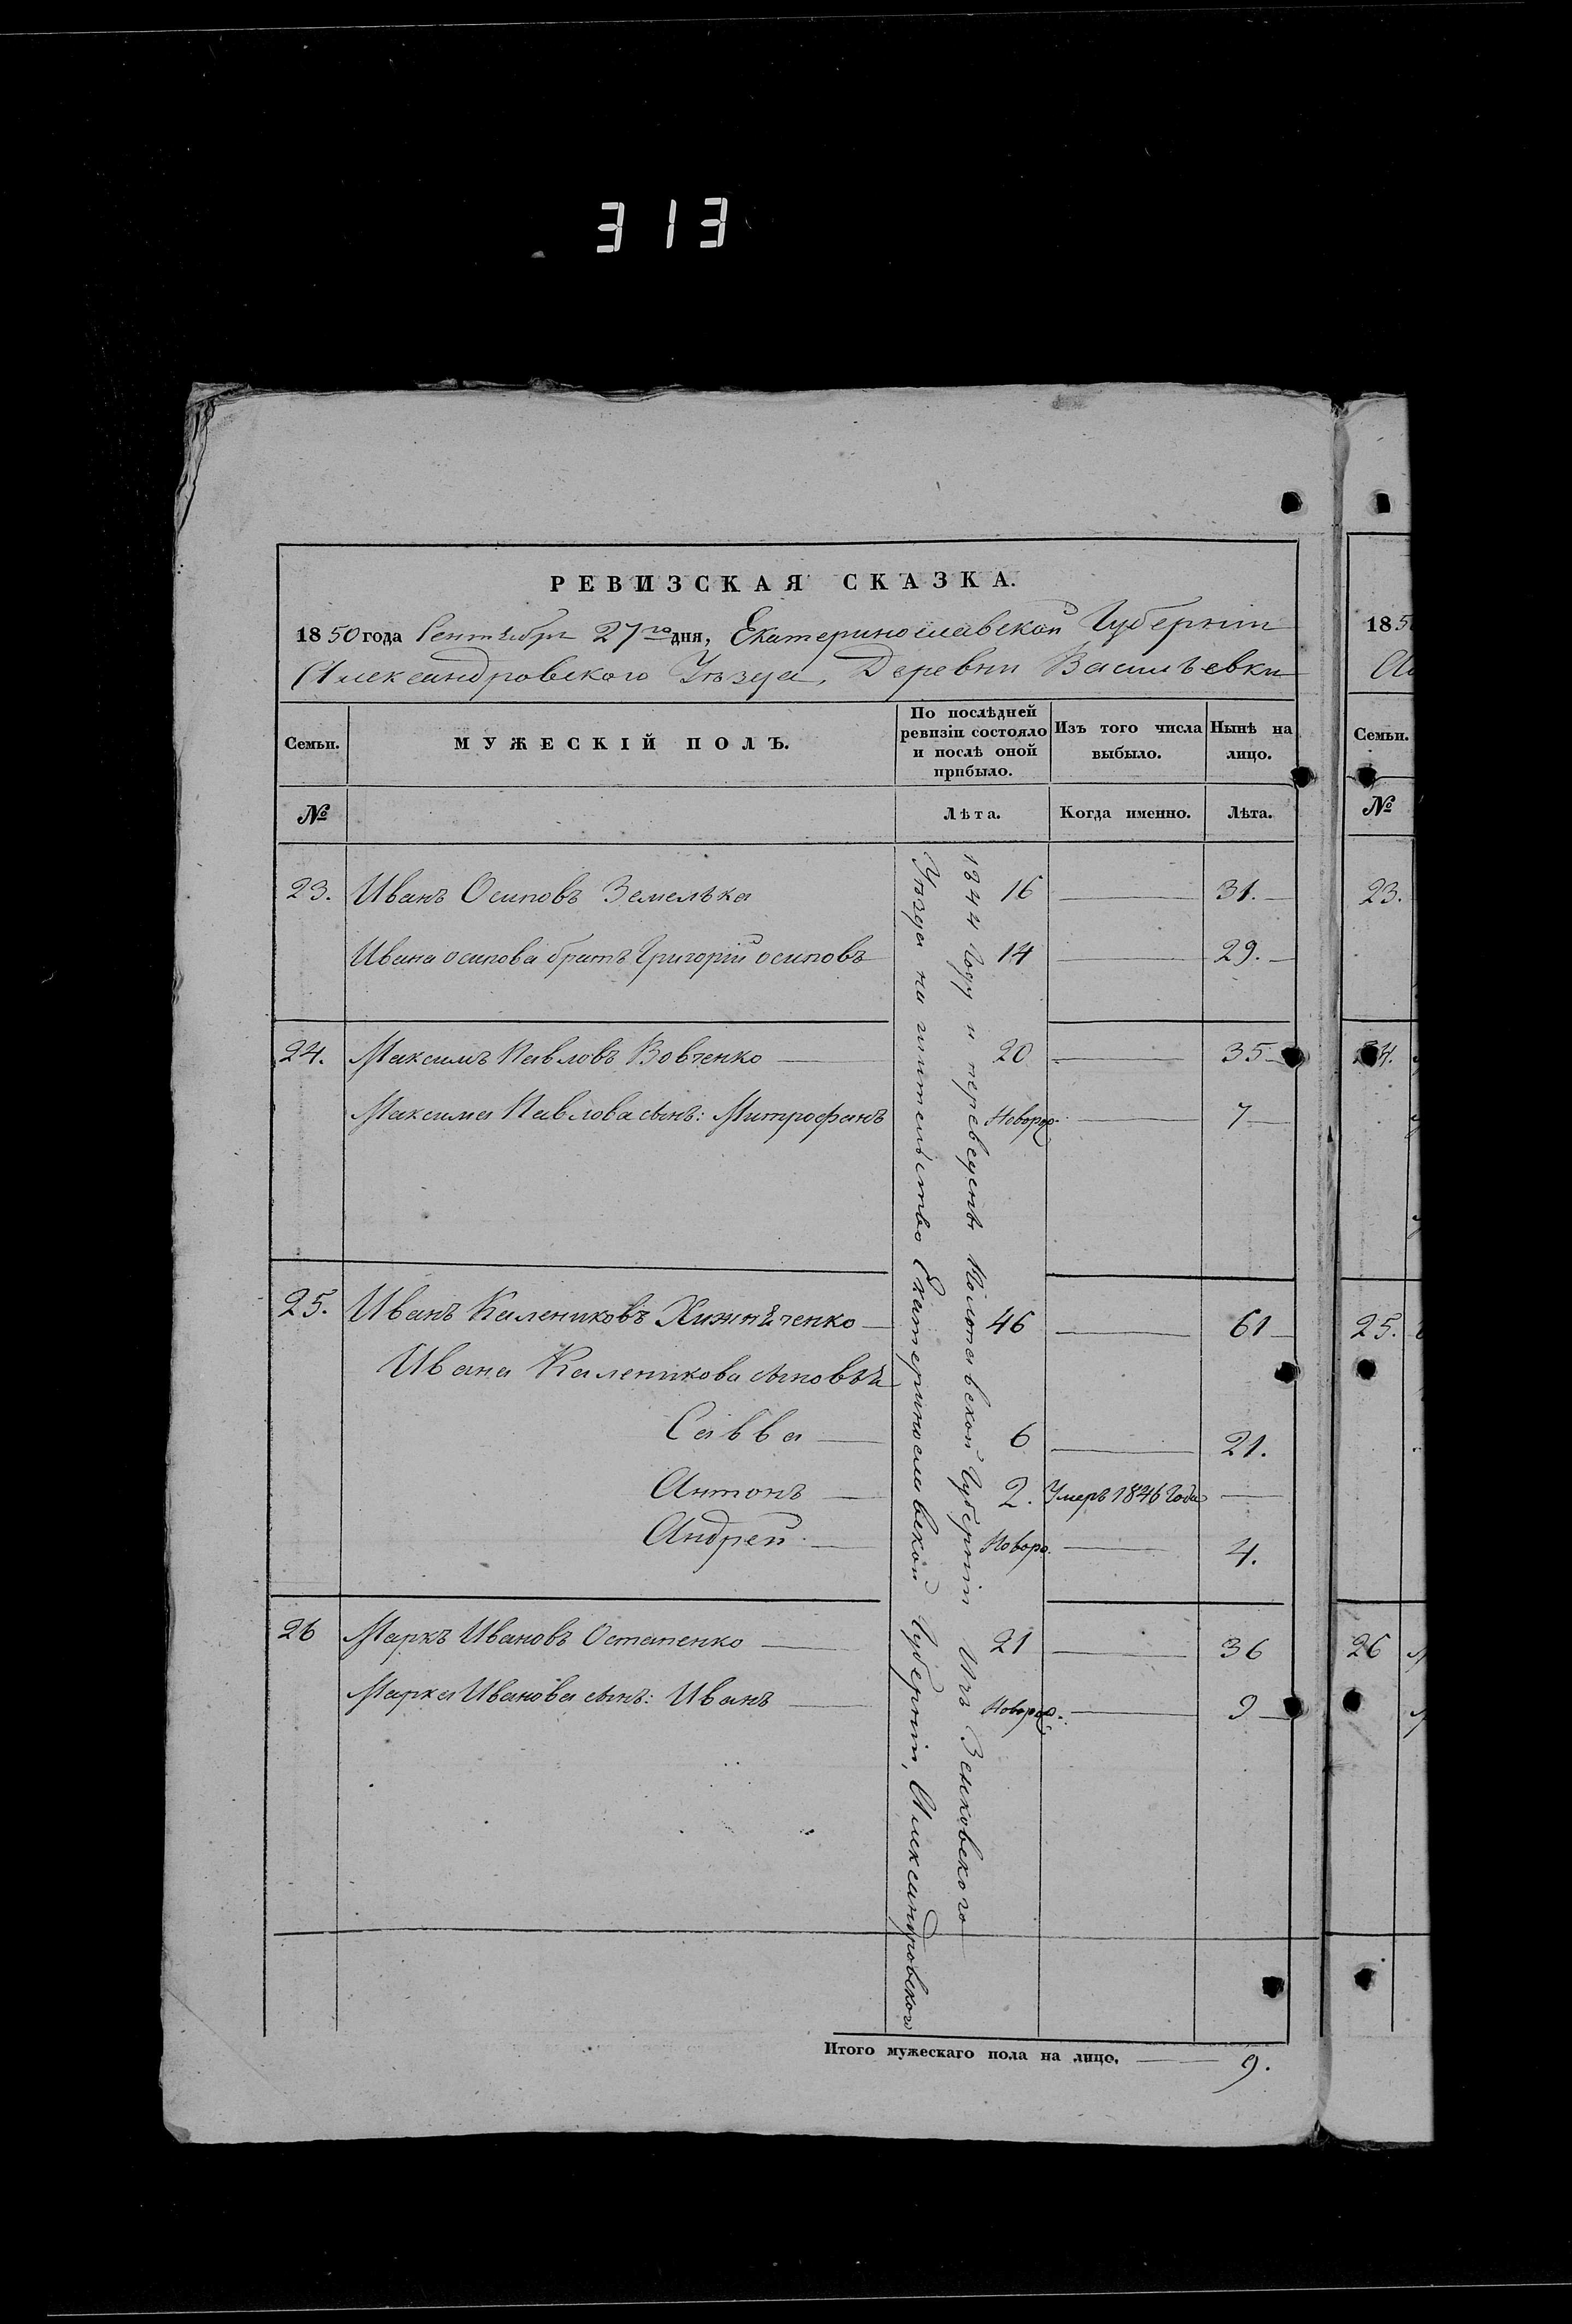 313
РЕВИЗСКАЯ СКАЗКА.
1850 года Сентября 27го дня, Екатеринославской Губерніи
Александровского Уѣзда, Деревни Васильевки
1850
Семьи.
МУЖЕСКІЙ ПОЛЪ.
По послѣдней ревизіи состояло и послѣ оной прибыло.
Изъ того числа выбыло.
Нынѣ на лицо.
Семьи.
№
Лѣта.
Когда именно.
Лѣта.
№
23. Иванъ Осиповъ Земелька 16 31. 23.
Ивана осипова братъ Григорій осиповъ 14 29.
24. Максимъ Павловъ Вовченко 20 35 24.
Максима Павлова сынъ: Митрофанъ Новорож. 7
25. Иванъ Калениковъ Хижнѣченко 46 61 25.
Ивана Каленикова сыновья
Савва 6 21.
Антонъ 2. Умеръ 1846 Года
Андрей Новоро. 4.
26 Маркъ Ивановъ Остапенко 21 36 26
Марка Иванова сынъ: Иванъ Новорож. 9
1844 Году и переведенѣ Полтавской Губерніи Изъ Зенковского
Уѣзда на жительство Екатеринославской Губерніи, Александровского
Итого мужескаго пола на лицо. 9.